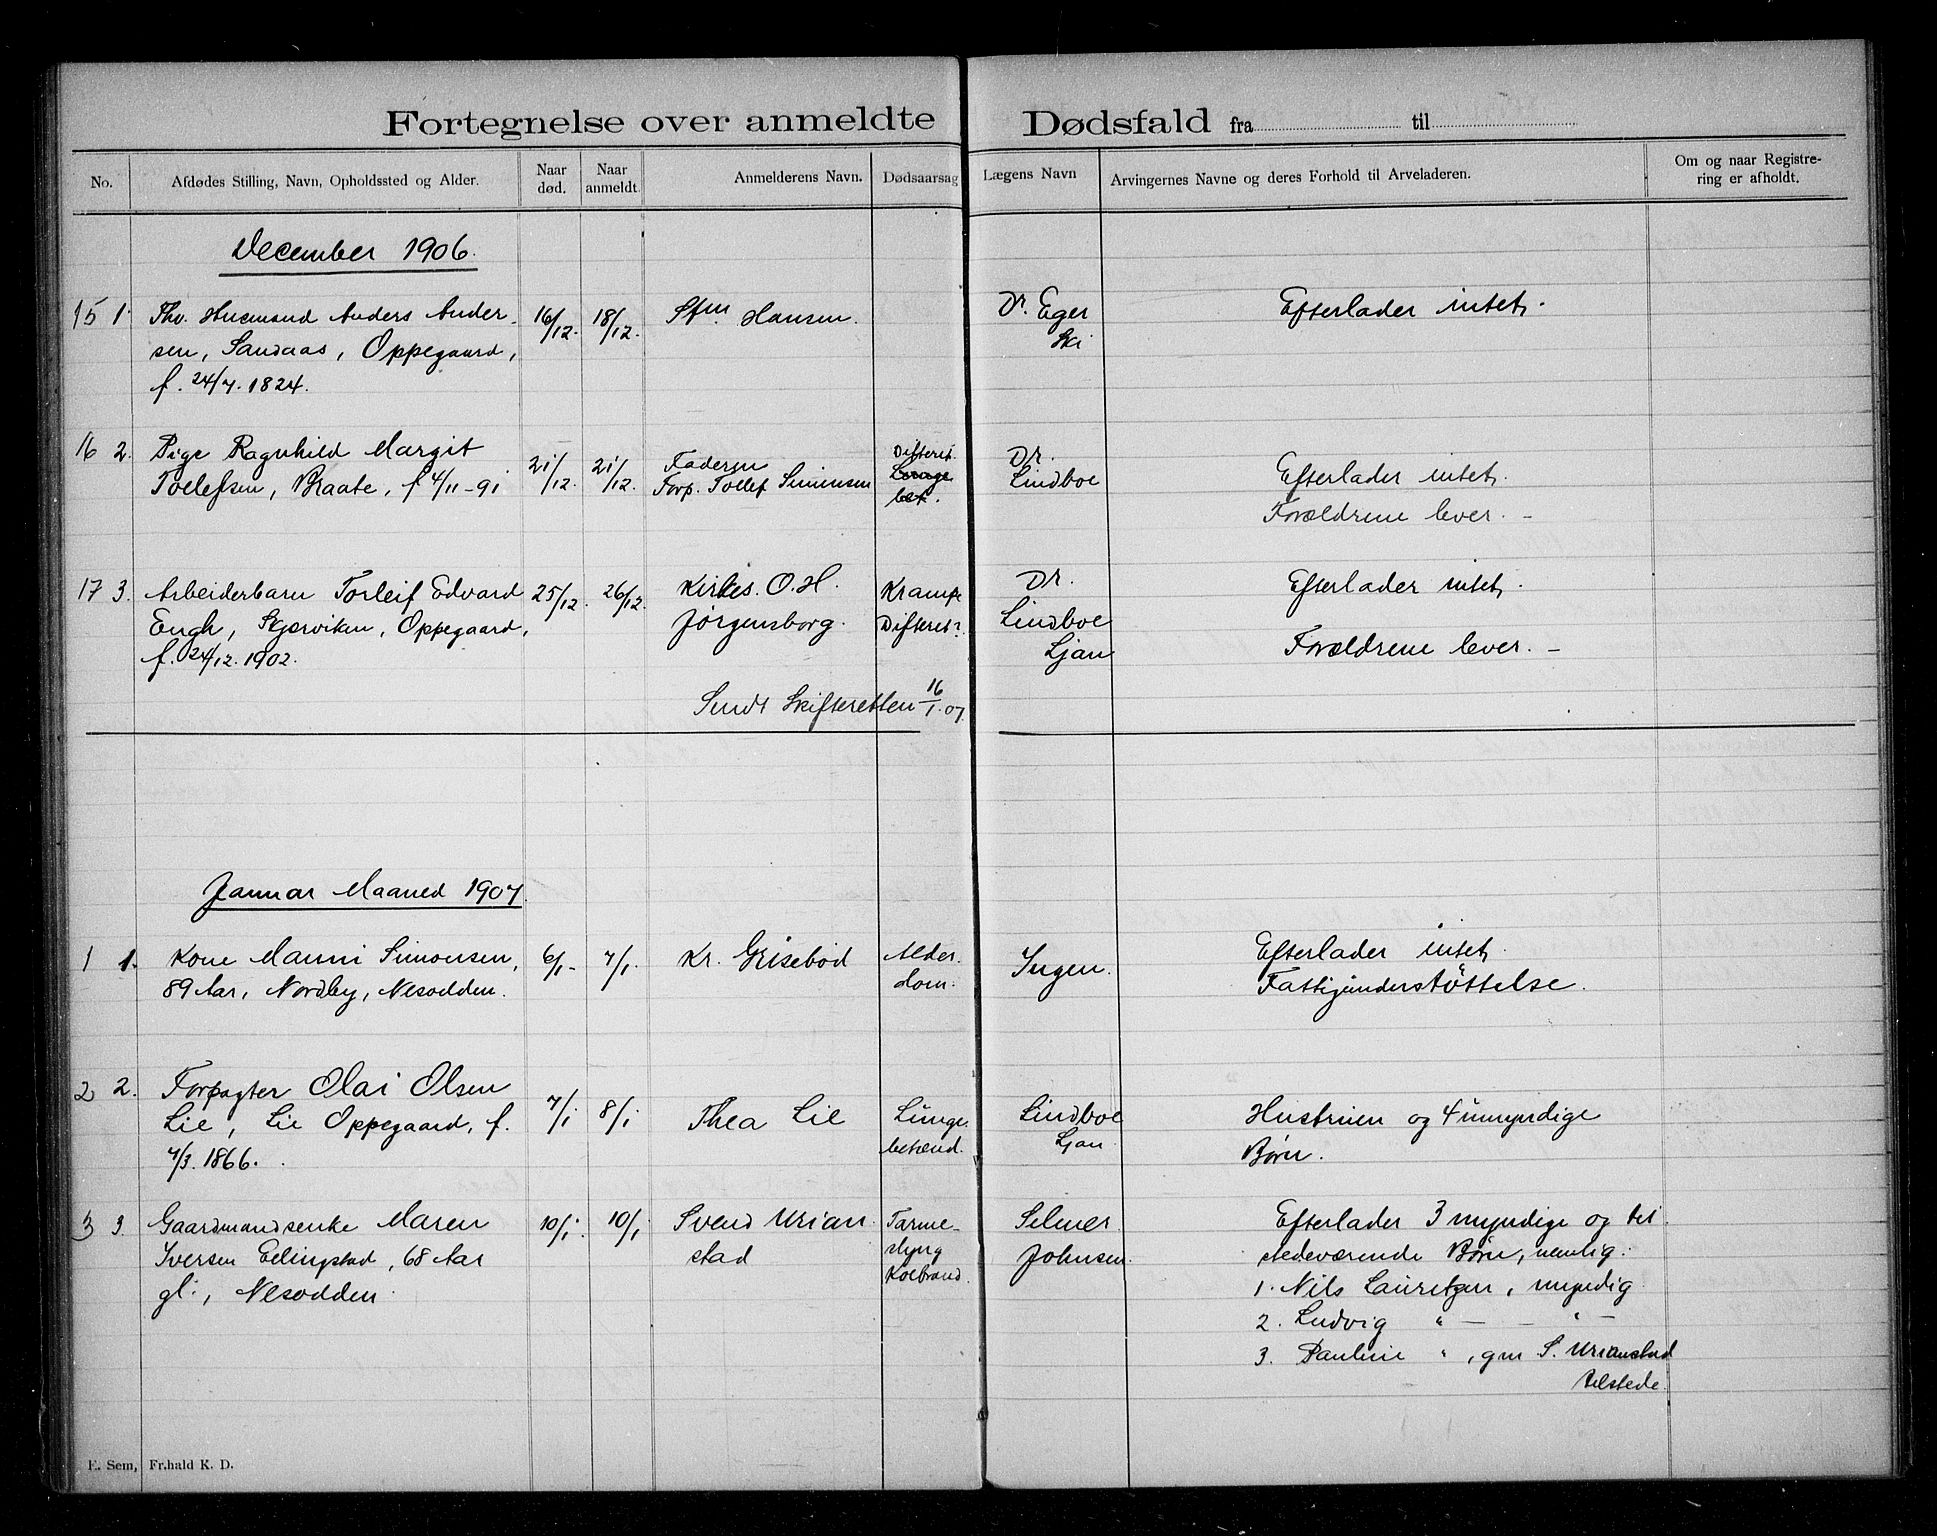 Fortegnelse over anmeldte Dødsfald fra til
No.
Afdødes Stilling, Navn, Opholdssted og Alder.
Naar død.
Naar anmeldt.
Anmelderens Navn.
Dødsaarsag
Lægens Navn
Arvingernes Navne og deres Forhold til Arveladeren.
Om og naar Registre-
ring er afholdt.
December 1906.
15 1. Thv. Husmand Anders Ander-
sen, Sandaas, Oppegaard,
f. 24/7. 1824.
16/12. 18/12.
Hansen.
Dr. Eger
Ski
Efterlader intet.
16 2. Pige Ragnhild Margit
Tollefsen, Braate, f 4/11-91
21/12. 21/12.
Faderen
Forp. Tollef Simensen
Difterit.
Lunge
bet.
Dr.
Lindboe
Efterlader intet.
Forældrene lever. -
17 3. Arbeiderbarn Torleif Edvard
Engh, Skjærviken, Oppegaard,
f. 24/12. 1902.
25/12. 26/12.
Kirkes. O. H.
Jørgensborg.
Krampe
Difterit?
Dr.
Lindboe
Ljan
Efterlader intet.
Forældrene lever. -
Sendt Skifteretten 16/1. 07
Januar Maaned 1907.
1 1. Kone Manni Simonsen,
89 Aar, Nordby, Nesodden.
6/1- 7/1.
Kr. Grisebød
Alder-
dom.
Ingen.
Efterlader intet.
Fattigunderstöttelse.
2 2. Forpagter Olai Olsen
Lie, Lie Oppegaard, f.
7/3. 1866.
7/1 8/1
Thea Lie
Lunge
betænd.
Lindboe
Ljan
Hustruen og 4 umyndige
Børn.
3 3. Gaardmandsenke Maren
Iversen Ellingstad, 68 Aar
gl., Nesodden.
10/1. 10/1
Svend Urian
stad
Tarme-
slyng
Kolbrand.
Selmer
Johnsen.
Efterlader 3 myndige og til
stedeværende Børn, nemlig:
1. Nils Lauritzen, myndig
2. Ludvig " - - " -
3. Pauline " , gm S. Urianstad
tilstede.
E. Sem, Fr.hald K. D.